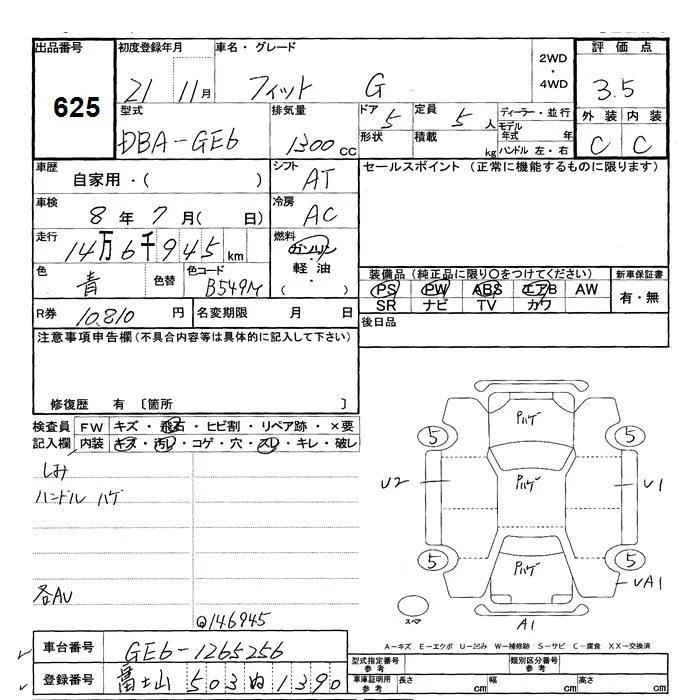 出品番号 初度登録年月 車名・グレード 評価点
625 21 11月 フィット G 2WD・4WD 3.5
型式 排気量 ドア 5 定員 5人 ディーラー・並行 外装 内装
DBA-GE6 1300cc 形状 積載 kg モデル年式 年 ハンドル 左・右 C C
車歴 シフト セールスポイント (正常に機能するものに限ります)
自家用・( ) AT
車検 冷房
8年7月( 日) AC
走行 燃料
14万6千945km ガソリン・軽油・( )
色 青 色替 色コード B549M 装備品 (純正品に限り○をつけてください) 新車保証書
PS PW ABS エアB AW 有・無
SR ナビ TV カワ
R券 10.810円 名変期限 月 日 後日品
注意事項申告欄 (不具合内容等は具体的に記入して下さい)
修復歴 有 〔箇所 〕
検査員 FW キズ・飛石・ヒビ割・リペア跡・×要
記入欄 内装 キズ・汚レ・コゲ・穴・スレ・キレ・破レ
しみ
ハンドル ハゲ
各AU
@146945
Pハゲ
5 5
U2 Pハゲ U1
5 Pハゲ 5
UA1
スペア A1
A－キズ E－エクボ U－凹み W－補修跡 S－サビ C－腐食 XX－交換済
車台番号 GE6-1265256 型式指定番号 参考 類別区分番号 参考
登録番号 富士山 503 ぬ 1390 車庫証明用 参考 長さ cm 幅 cm 高さ cm